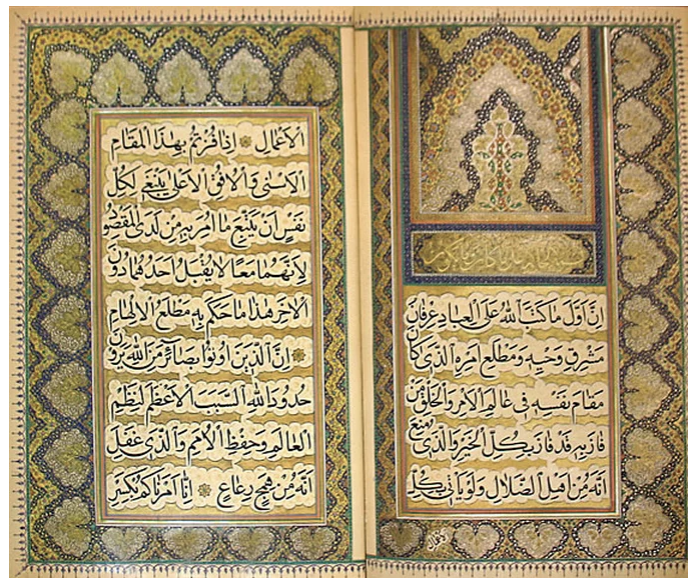 بسمه الحاكم على ما كان وما يكون
انّ اوّل ما كتب الله على العباد عرفان
مشرق وحيه ومطلع امره الذى كان
مقام نفسه فى عالم الامر والخلق من
فاز به قد فاز بكلّ الخير والذى منع
انّه من اهل الضلال ولو يأتى بكلّ
الاعمال ۞ اذا فزتم بهذا المقام
الاسنى والافق الاعلى ينبغى لكلّ
نفس ان يتّبع ما امر به من لدى المقصود
لانّهما معاً لا يقبل احدهما دون
الآخر هذا ما حكم به مطلع الالهام
۞ انّ الذين اوتوا بصائر من الله يرون
حدود الله السبب الاعظم لنظم
العالم وحفظ الامم والذى غفل
انّه من همج رعاع ۞ انّا امرناكم بكسر